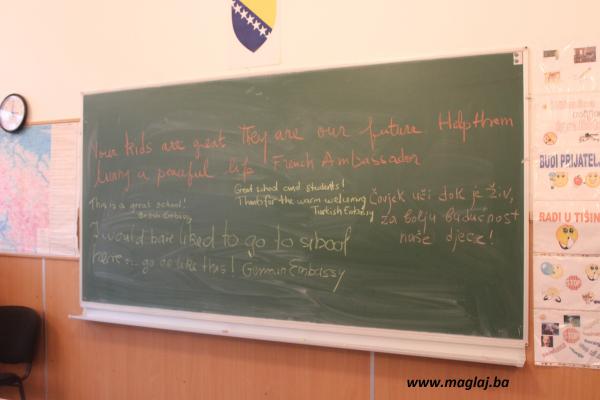 Your kids are great They are our future Help them
living a peaceful life French Ambassador
This is a great school!
British Embassy
Great school and students!
Thanks for the warm welcoming
Turkish Embassy
Čovjek uči dok je živ,
za bolju budućnost
naše djece!
I would have liked to go to school
here... go on like this! German Embassy
BUDI PRIJATELJ
RADI U TIŠIN
STOP
www.maglaj.ba